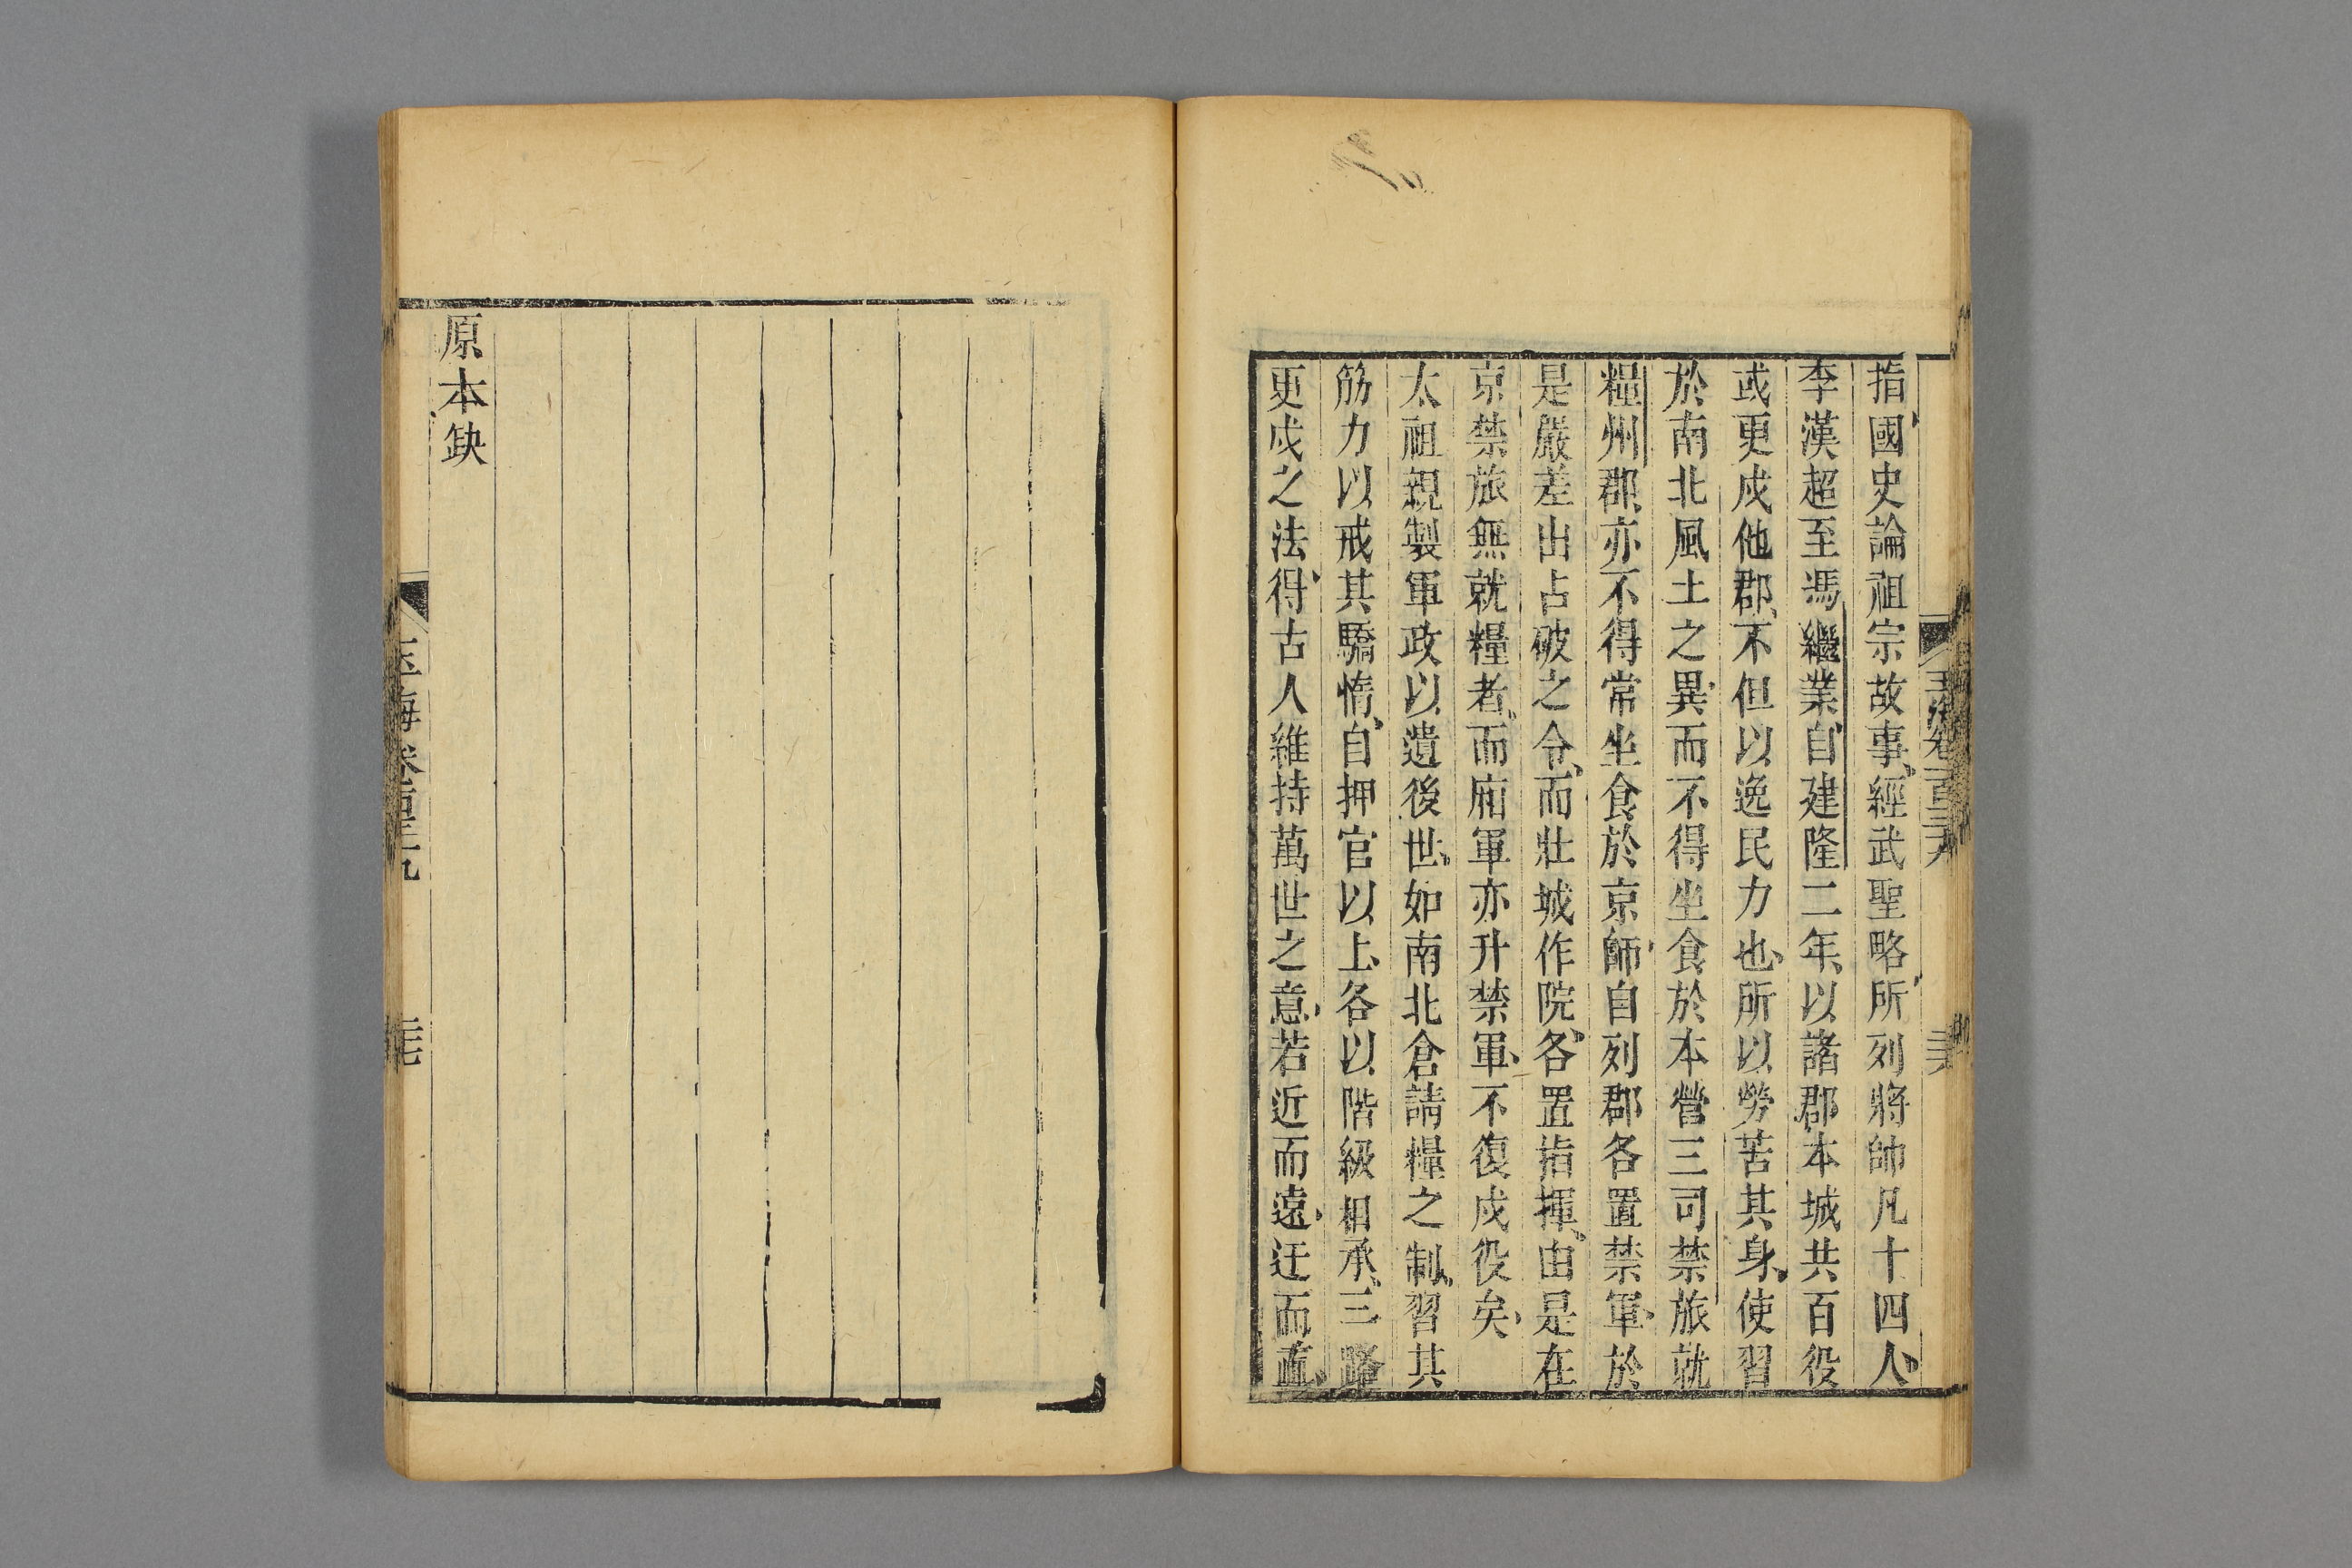 指國史論祖宗故事經武聖略所列將帥凡十四人
李漢超至馮繼業自建隆二年以諸郡本城共百役
或更戍他郡不但以逸民力也所以勞苦其身使習
於南北風土之異而不得坐食於本營三司禁旅就
糧州郡亦不得常坐食於京師自列郡各置禁軍於
是嚴差出占破之令而壯城作院各置指揮由是在
京禁旅無就糧者而廂軍亦升禁軍不復戍役矣
太祖親製軍政以遺後世如南北倉請糧之制習其
筋力以戒其驕惰自押官以上各以階級相承三路
更戍之法得古人維持萬世之意若近而遠迂而直
原本缺
玉海卷一百三十九